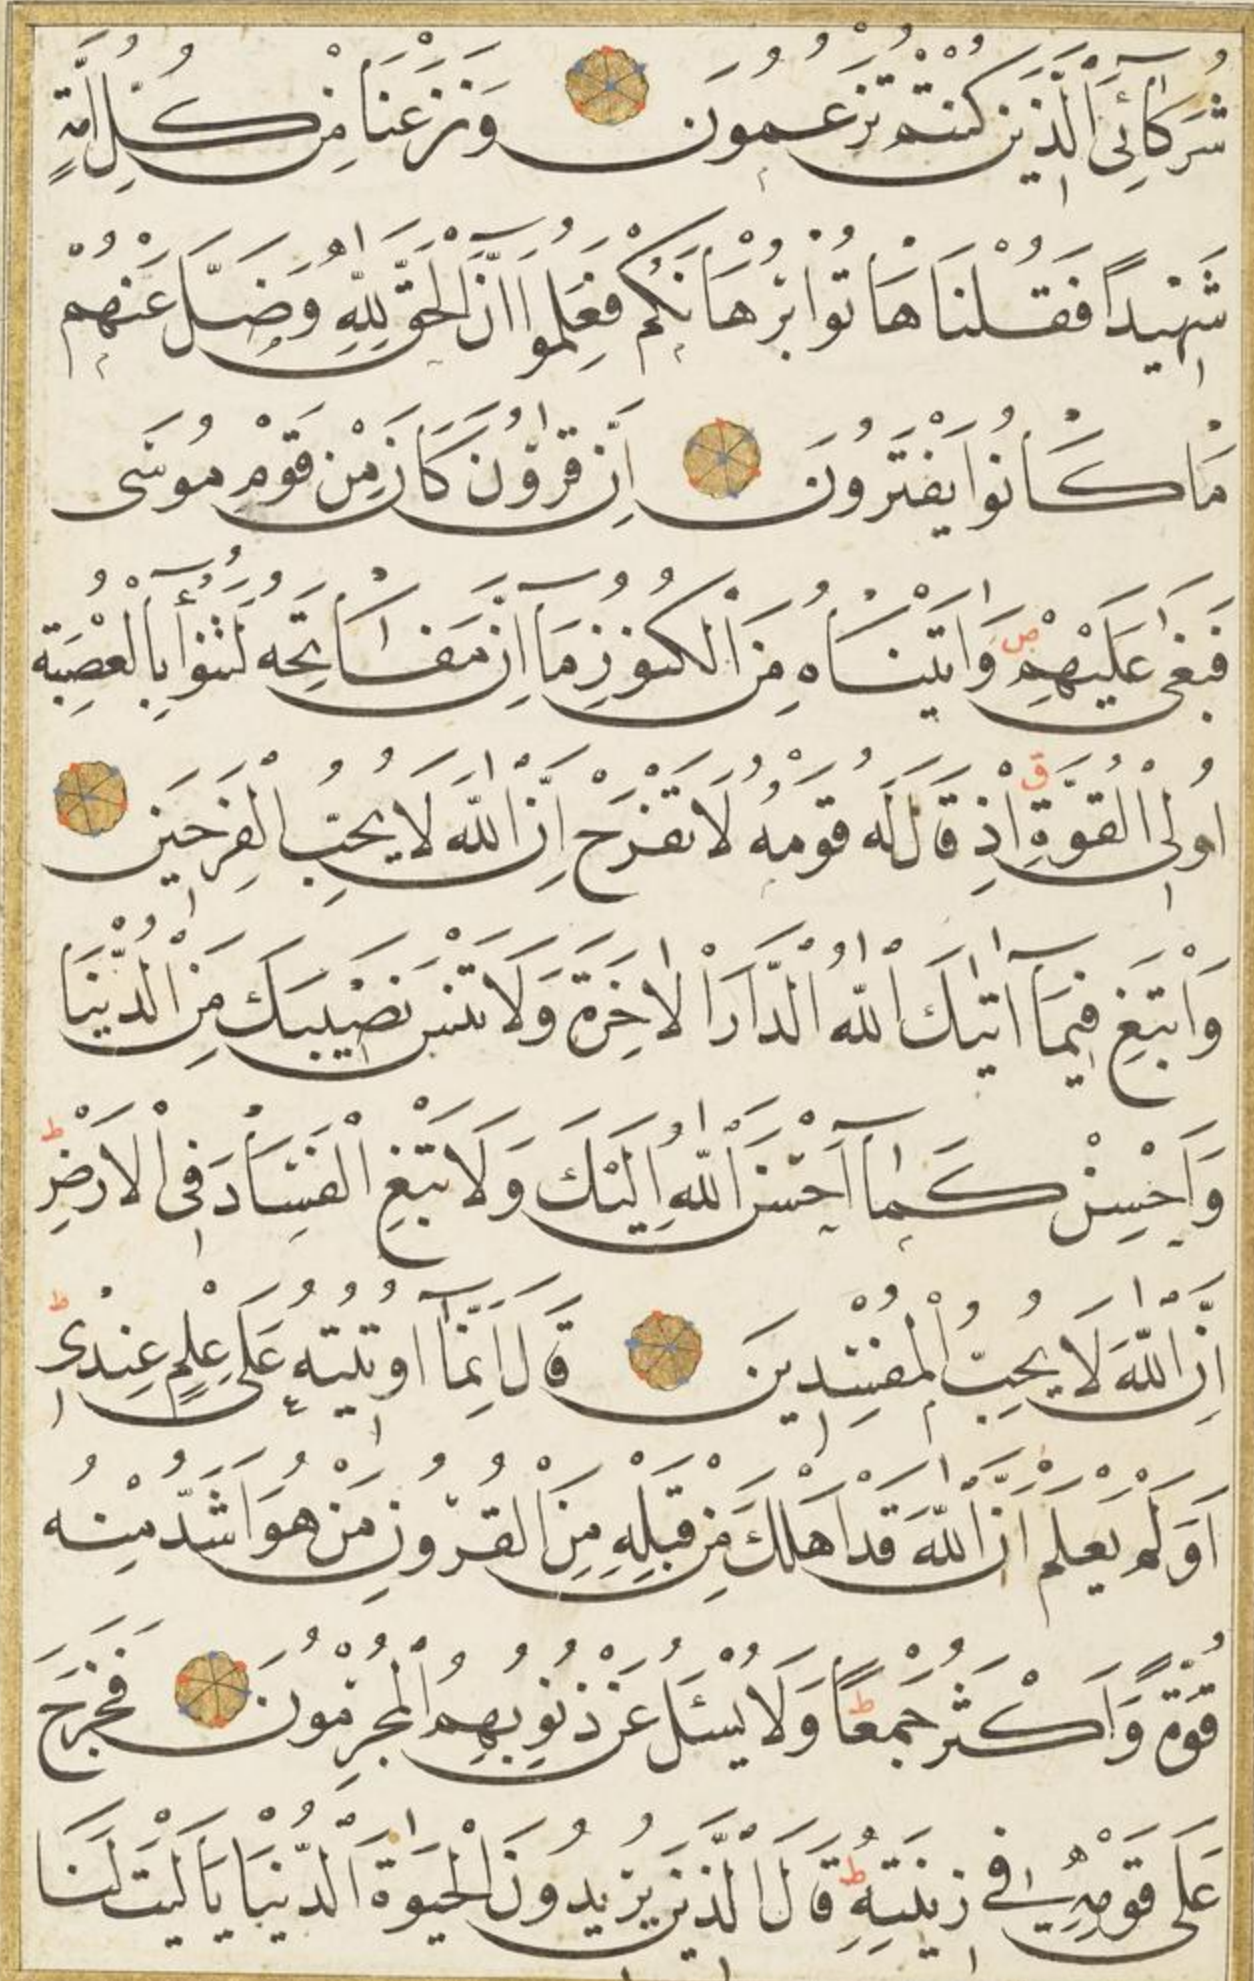 شُرَكَآئِيَ الَّذِينَ كُنْتُمْ تَزْعُمُونَ وَنَزَعْنَا مِنْ كُلِّ اُمَّةٍ
شَهِيدًا فَقُلْنَا هَاتُوا بُرْهَانَكُمْ فَعَلِمُوا اَنَّ الْحَقَّ لِلّٰهِ وَضَلَّ عَنْهُمْ
مَا كَانُوا يَفْتَرُونَ اِنَّ قَارُونَ كَانَ مِنْ قَوْمِ مُوسٰى
فَبَغٰى عَلَيْهِمْ ص وَاٰتَيْنَاهُ مِنَ الْكُنُوزِ مَآ اِنَّ مَفَاتِحَهُ لَتَنُوٓأُ بِالْعُصْبَةِ
اُولِي الْقُوَّةِ ق اِذْ قَالَ لَهُ قَوْمُهُ لَا تَفْرَحْ اِنَّ اللّٰهَ لَا يُحِبُّ الْفَرِحِينَ
وَابْتَغِ فِيمَآ اٰتٰيكَ اللّٰهُ الدَّارَ الْاٰخِرَةَ وَلَا تَنْسَ نَصِيبَكَ مِنَ الدُّنْيَا
وَاَحْسِنْ كَمَآ اَحْسَنَ اللّٰهُ اِلَيْكَ وَلَا تَبْغِ الْفَسَادَ فِي الْاَرْضِ ط
اِنَّ اللّٰهَ لَا يُحِبُّ الْمُفْسِدِينَ قَالَ اِنَّمَآ اُوتِيتُهُ عَلٰى عِلْمٍ عِنْدِي ط
اَوَلَمْ يَعْلَمْ اَنَّ اللّٰهَ قَدْ اَهْلَكَ مِنْ قَبْلِهِ مِنَ الْقُرُونِ مَنْ هُوَ اَشَدُّ مِنْهُ
قُوَّةً وَاَكْثَرُ جَمْعًا ط وَلَا يُسْئَلُ عَنْ ذُنُوبِهِمُ الْمُجْرِمُونَ فَخَرَجَ
عَلٰى قَوْمِهِ فِي زِينَتِهِ ط قَالَ الَّذِينَ يُرِيدُونَ الْحَيٰوةَ الدُّنْيَا يَا لَيْتَ لَنَا